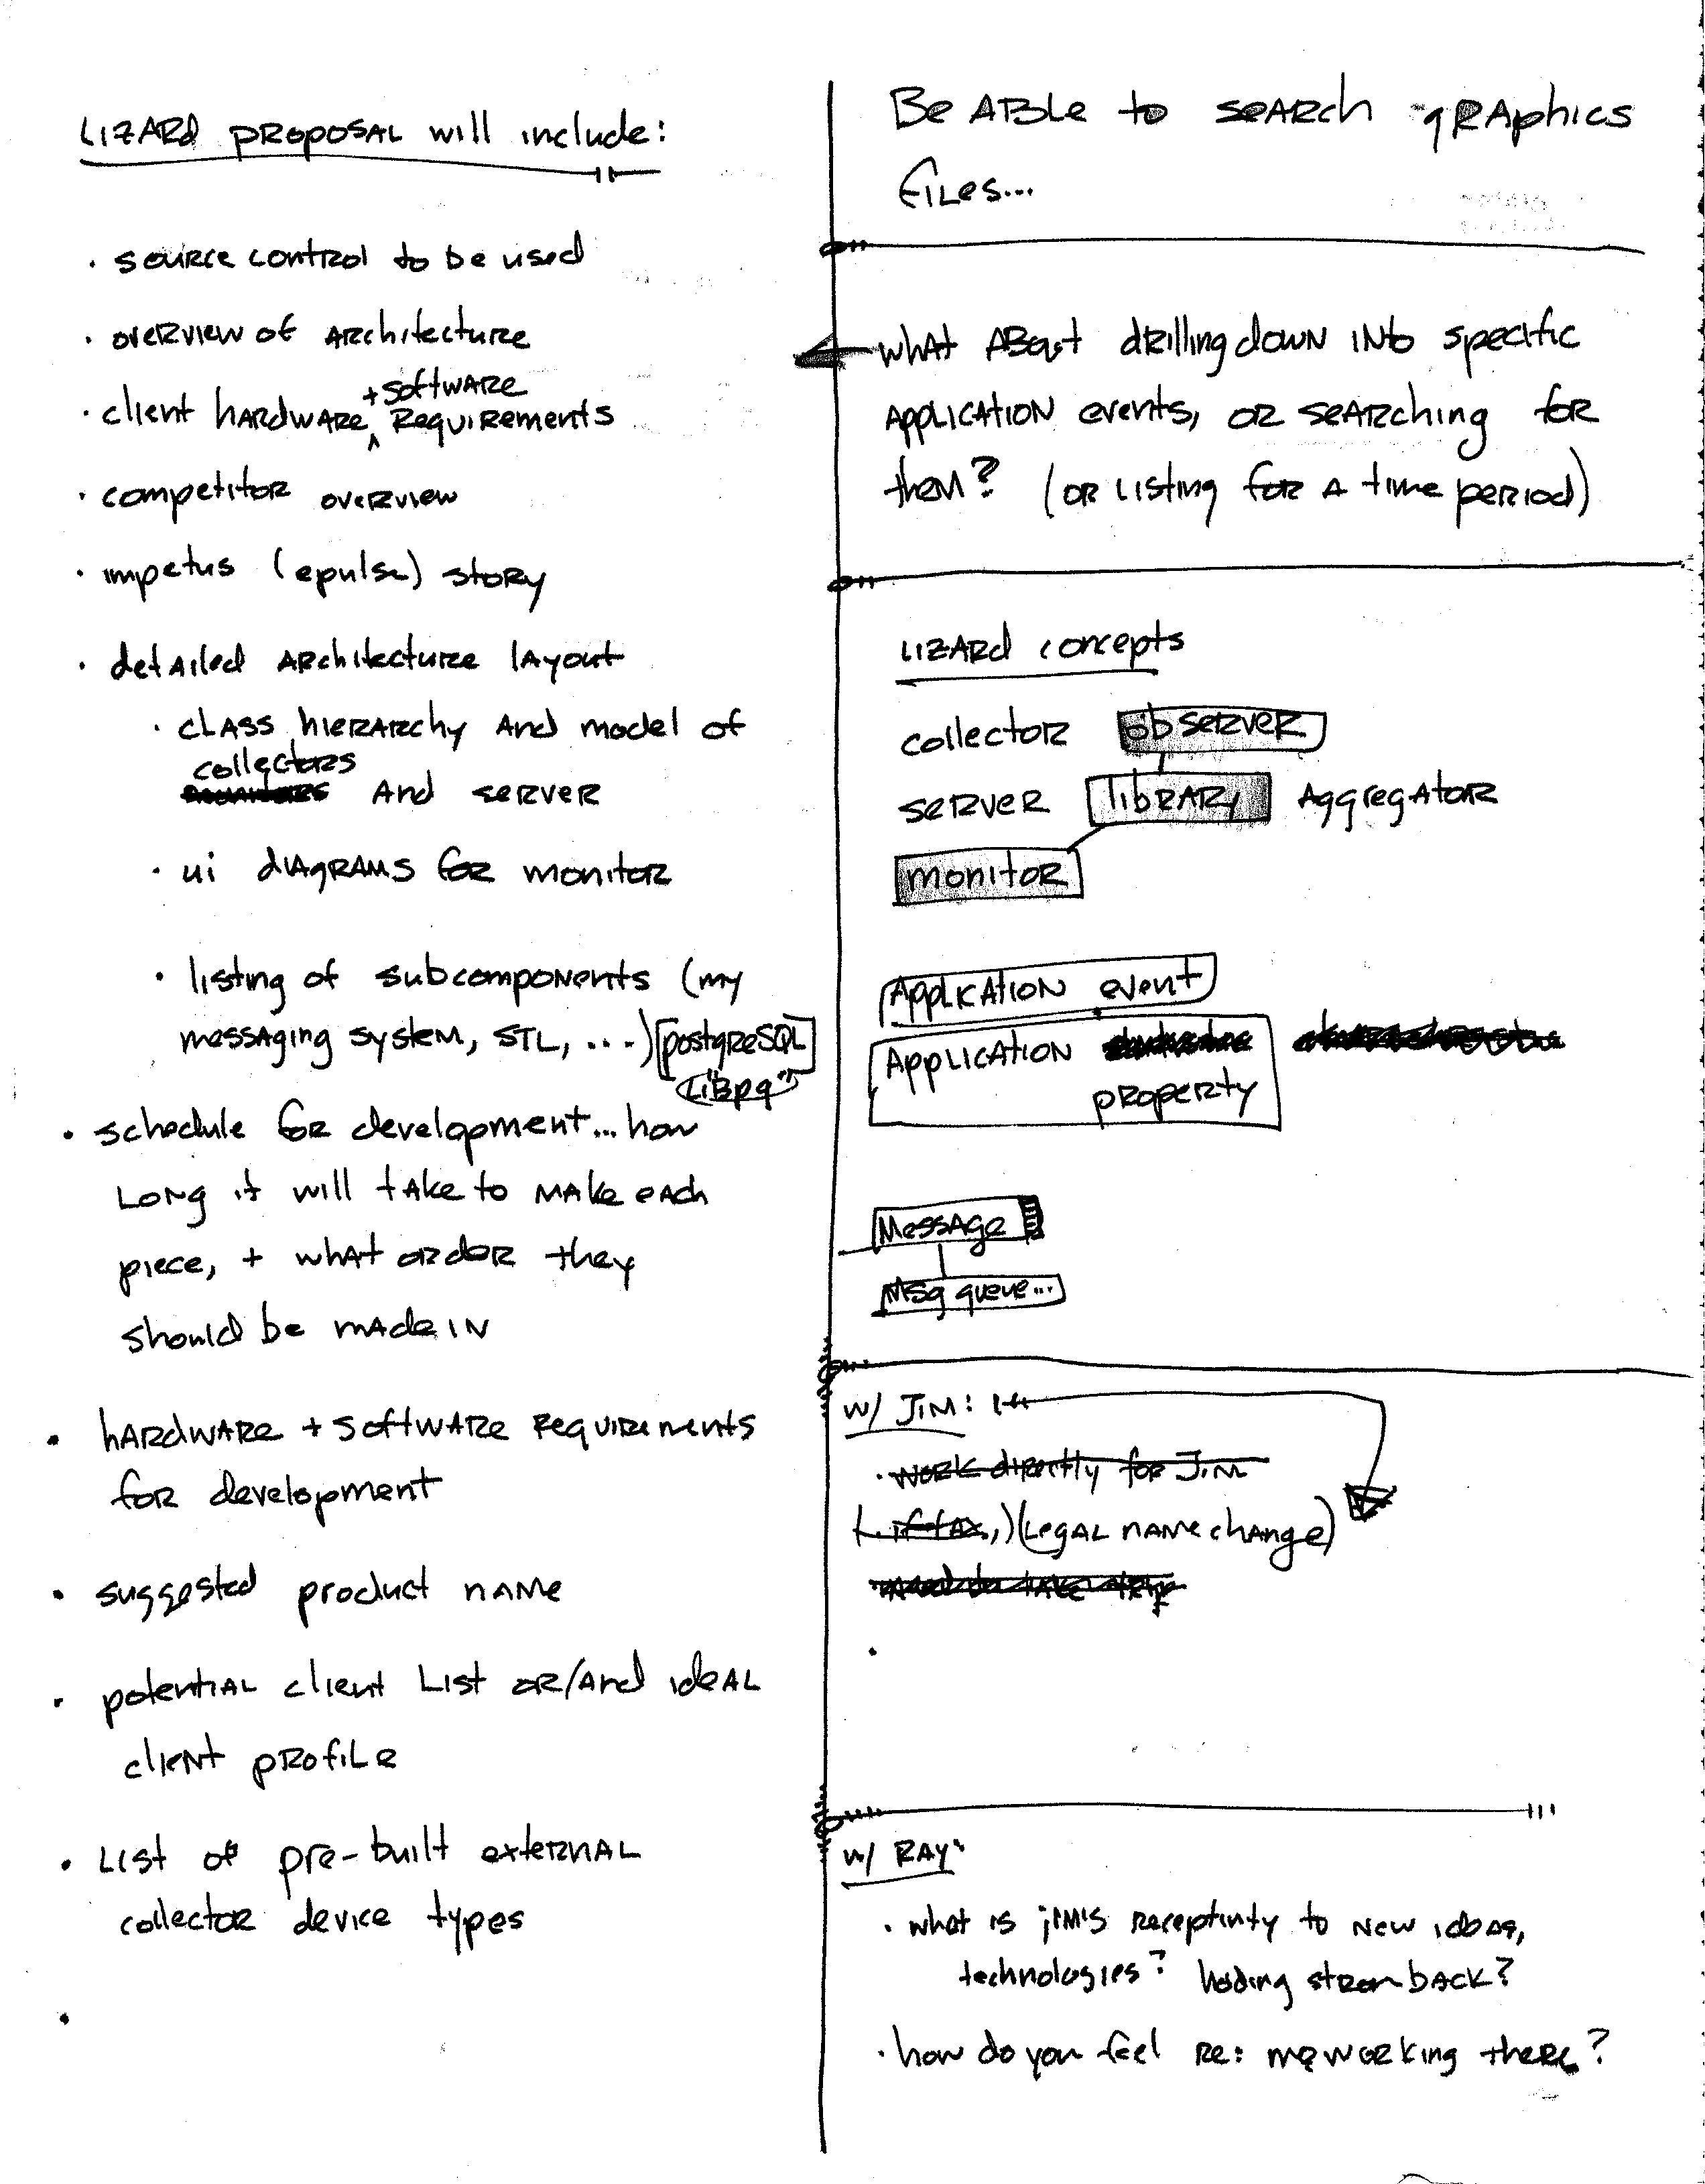 LIZARD PROPOSAL will include:
· source control to be used
· overview of architecture
+ software
· client hardware ^ requirements
· competitor overview
· impetus (epulse) story
· detailed architecture layout
· class hierarchy and model of
collectors
and server
· ui diagrams for monitor
· listing of subcomponents (my
messaging system, STL, ...) postgreSQL
"LiBpq"
· schedule for development... how
long it will take to make each
piece, + what order they
should be made in
· hardware + software requirements
for development
· suggested product name
· potential client list or/and ideal
client profile
· List of pre-built external
collector device types
·
Be able to search graphics
files...
what about drilling down into specific
application events, or searching for
them? (or listing for a time period)
LIZARD concepts
collector observer
server library Aggregator
monitor
Application event
Application
property
Message
Msg queue...
w/ JIM:
· work directly for Jim
(Legal name change)
·
w/ RAY:
· what is jim's receptivity to new ideas,
technologies? holding back?
· how do you feel re: me working there?